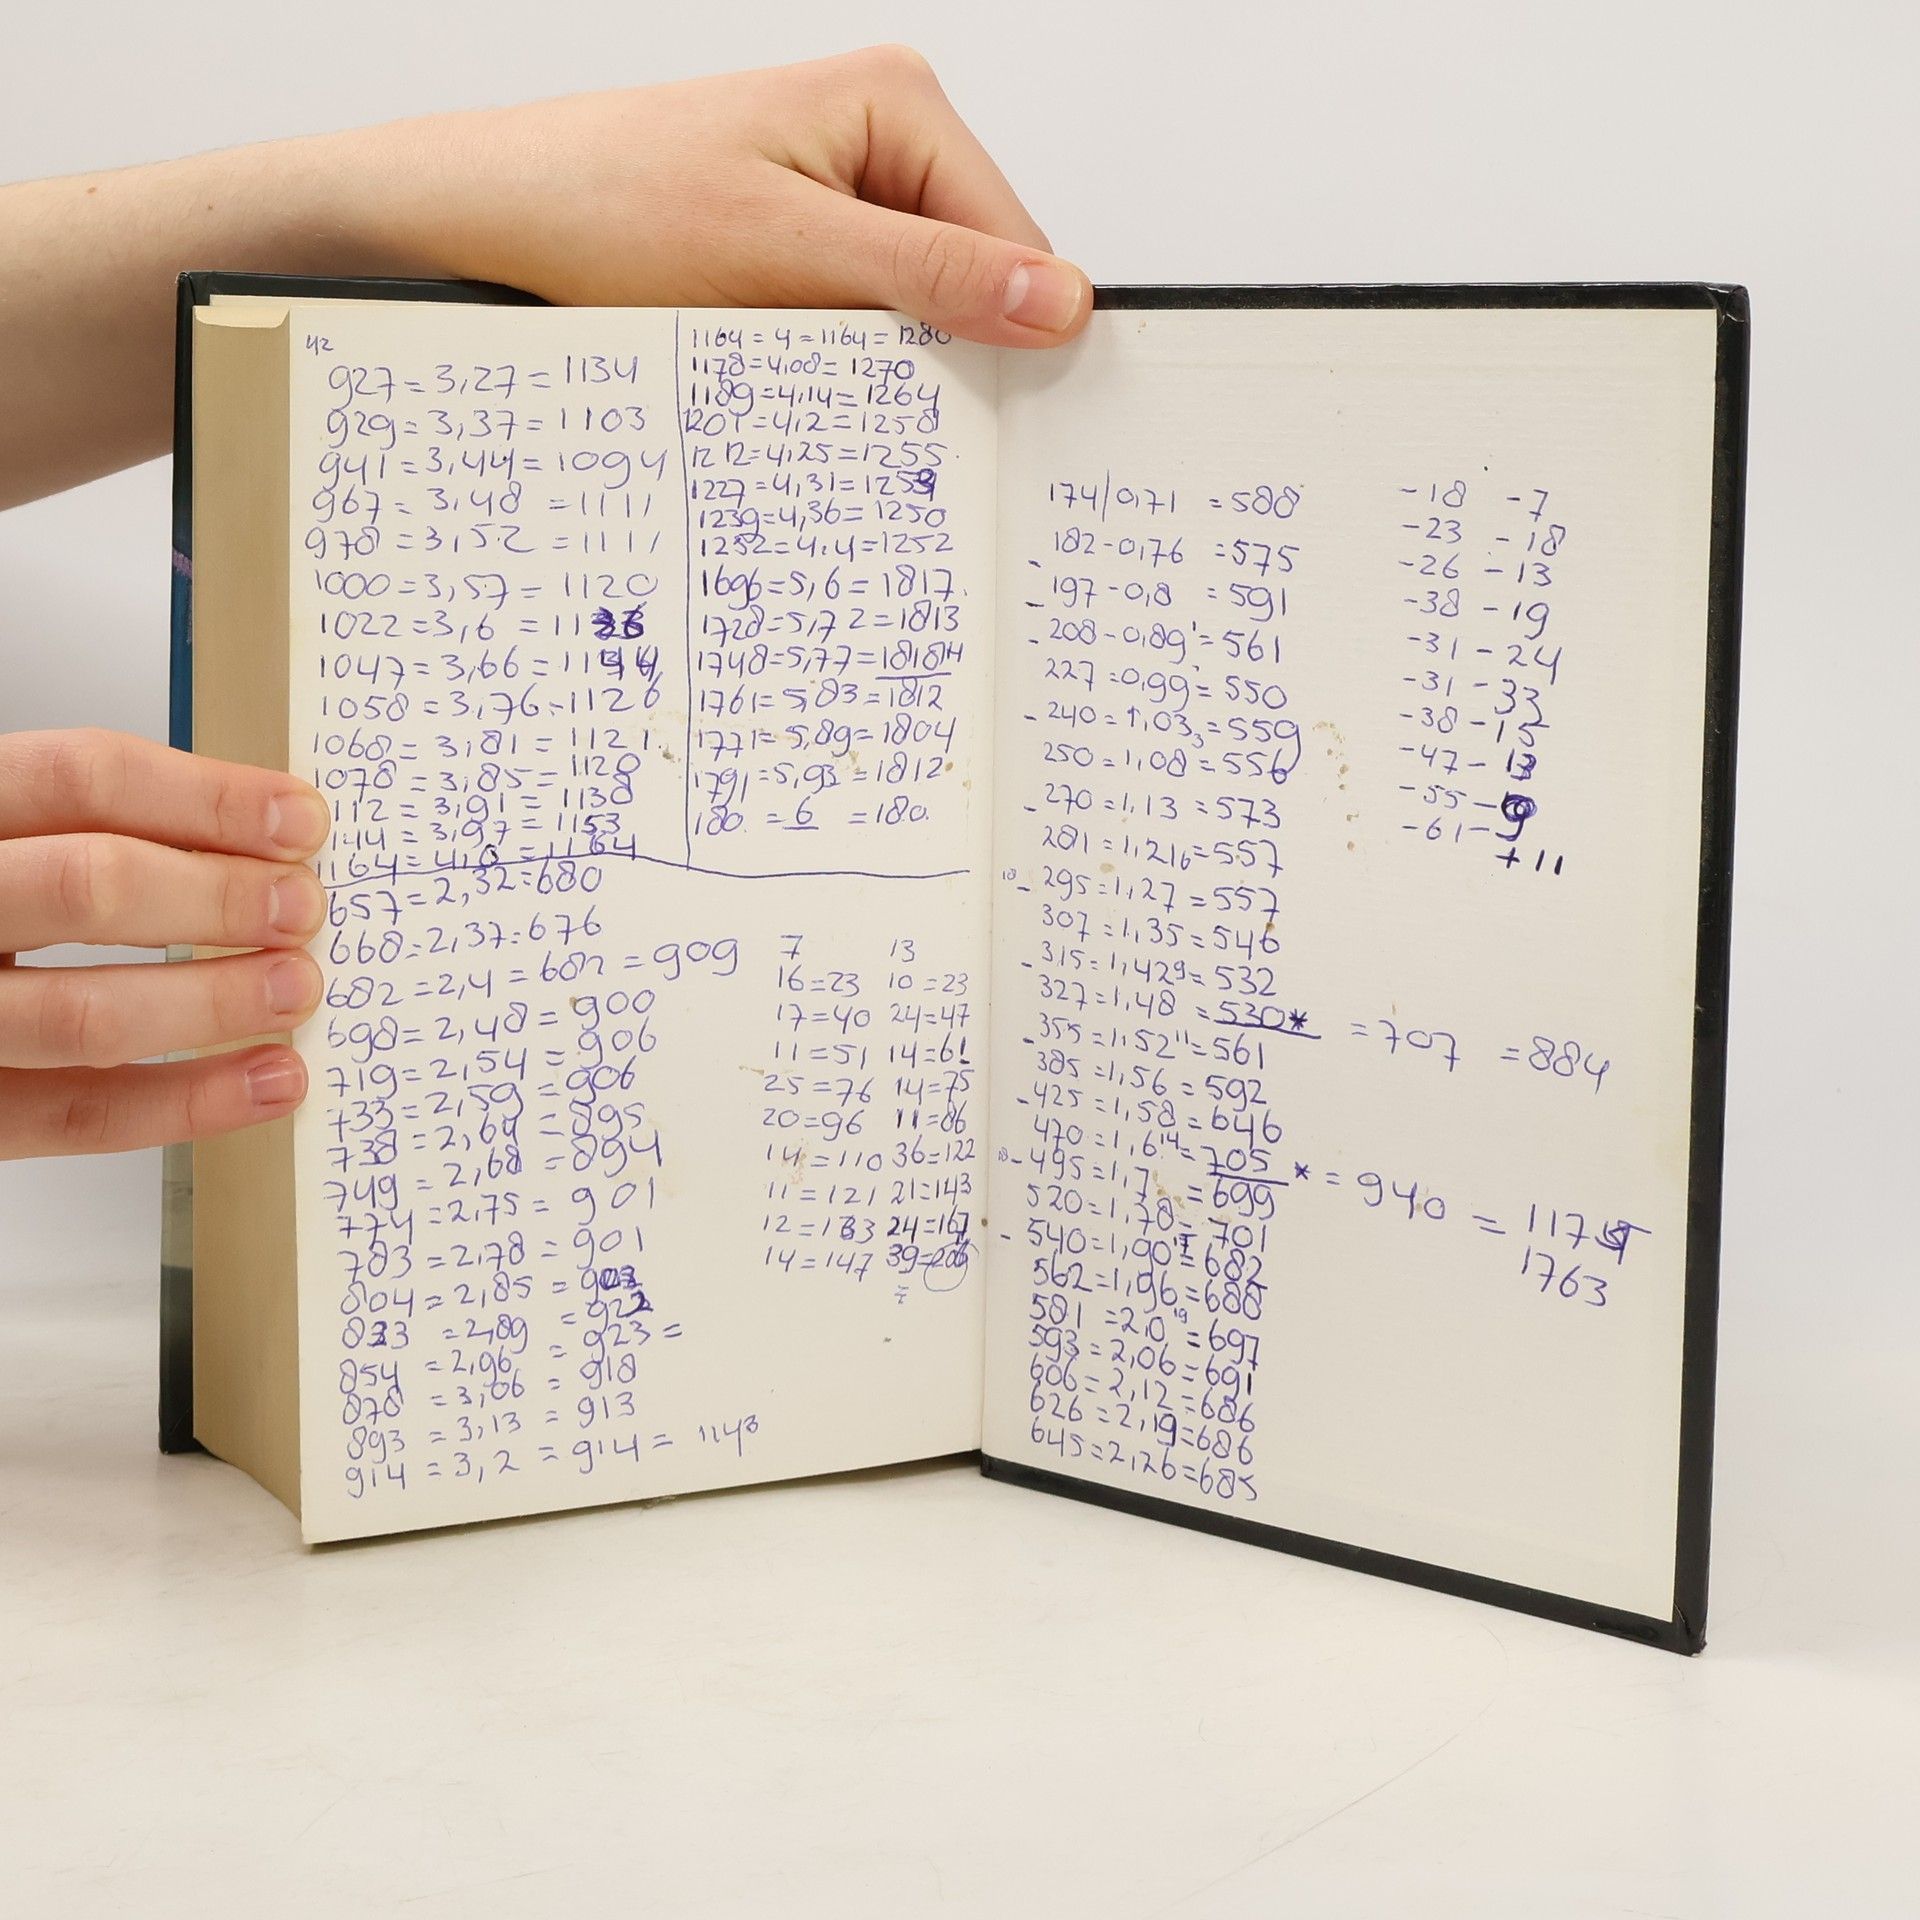 42
927 = 3,27 = 1134
929 = 3,37 = 1103
941 = 3,44 = 1094
967 = 3,48 = 1111
978 = 3,52 = 1111
1000 = 3,57 = 1120
1022 = 3,6 = 11
1047 = 3,66 = 1144
1058 = 3,76 = 1126
1068 = 3,81 = 1121.
1078 = 3,85 = 1120
1112 = 3,91 = 1138
1144 = 3,97 = 1153
1164 = 4,0 = 1164
1164 = 4 = 1164 = 1280
1178 = 4,08 = 1270
1189 = 4,14 = 1264
1201 = 4,2 = 1258
1212 = 4,25 = 1255.
1227 = 4,31 = 1253
1239 = 4,36 = 1250
1252 = 4,4 = 1252
1696 = 5,6 = 1817.
1728 = 5,72 = 1813
1748 = 5,77 = 1818
1761 = 5,83 = 1812
1771 = 5,89 = 1804
1791 = 5,93 = 1812
180. = 6 = 180.
657 = 2,32 = 680
668 = 2,37 = 676
682 = 2,4 = 682 = 909
698 = 2,48 = 900
719 = 2,54 = 906
733 = 2,59 = 906
738 = 2,64 = 895
749 = 2,68 = 894
774 = 2,75 = 901
783 = 2,78 = 901
804 = 2,85 = 903
823 = 2,89 = 922
854 = 2,96 = 923 =
878 = 3,06 = 918
893 = 3,13 = 913
914 = 3,2 = 914 = 1143
7 13
16 = 23 10 = 23
17 = 40 24 = 47
11 = 51 14 = 61
25 = 76 14 = 75
20 = 96 11 = 86
14 = 110 36 = 122
11 = 121 21 = 143
12 = 133 24 = 167
14 = 147 39 = 206
174 | 0,71 = 588
182 - 0,76 = 575
- 197 - 0,8 = 591
- 208 - 0,89 = 561
- 227 = 0,99 = 550
- 240 = 1,03 3 = 559
250 = 1,08 = 556
- 270 = 1,13 = 573
281 = 1,21 6 = 557
10 - 295 = 1,27 = 557
307 = 1,35 = 546
- 315 = 1,42 9 = 532
327 = 1,48 = 530* = 707 = 884
- 355 = 1,52 11 = 561
385 = 1,56 = 592
- 425 = 1,58 = 646
470 = 1,6 14 = 705 * = 940 = 1175
1763
- 495 = 1,7 = 699
520 = 1,78 = 701
- 540 = 1,90 = 682
562 = 1,96 = 688
581 = 2,0 19 = 697
593 = 2,06 = 691
606 = 2,12 = 686
626 = 2,19 = 686
645 = 2,26 = 685
-18 -7
-23 -18
-26 -13
-38 -19
-31 -24
-31 -33
-38 -15
-47 -13
-55 -9
-61 -9
+11